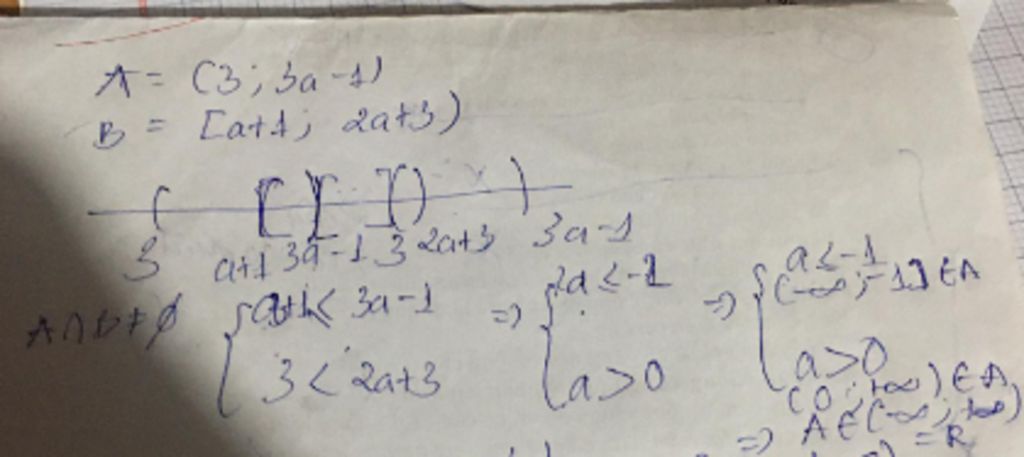 A = (3; 3a-1)
B = [a+1; 2a+3)
3 a+1 3a-1 3 2a+3 3a-1
A∩B≠∅ { a+1< 3a-1 => { 2a ≤ -1 => { a ≤ -1
(-∞; -1] ∈ A
3 < 2a+3 a>0 a>0
(0; +∞) ∈ A
=> A ∈ (-∞; +∞)
= R